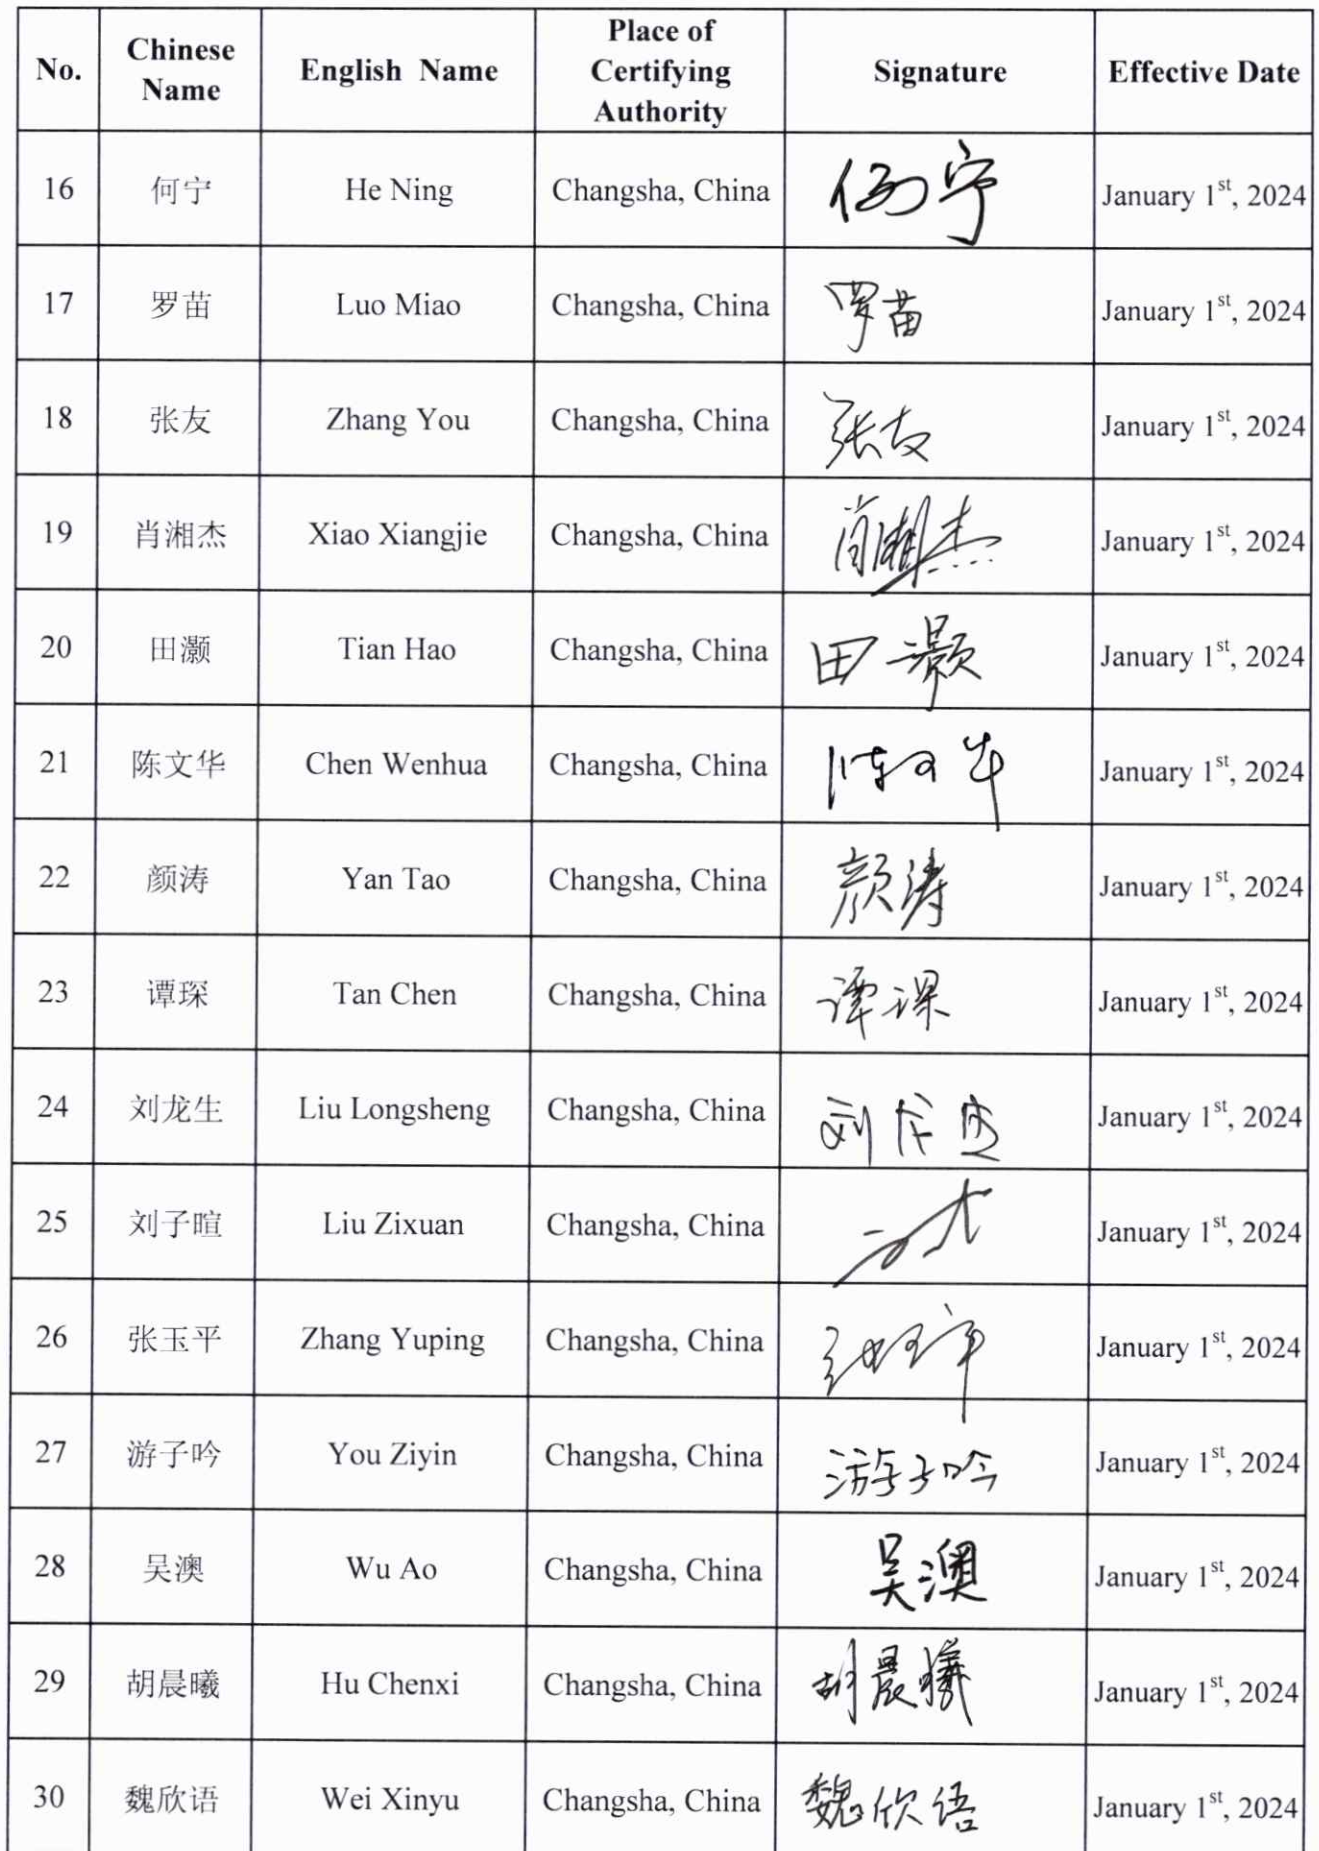 No. Chinese Name English Name Place of Certifying Authority Signature Effective Date
16 何宁 He Ning Changsha, China 何宁 January 1st, 2024
17 罗苗 Luo Miao Changsha, China 罗苗 January 1st, 2024
18 张友 Zhang You Changsha, China 张友 January 1st, 2024
19 肖湘杰 Xiao Xiangjie Changsha, China 肖湘杰 January 1st, 2024
20 田灏 Tian Hao Changsha, China 田灏 January 1st, 2024
21 陈文华 Chen Wenhua Changsha, China 陈文华 January 1st, 2024
22 颜涛 Yan Tao Changsha, China 颜涛 January 1st, 2024
23 谭琛 Tan Chen Changsha, China 谭琛 January 1st, 2024
24 刘龙生 Liu Longsheng Changsha, China 刘龙生 January 1st, 2024
25 刘子暄 Liu Zixuan Changsha, China January 1st, 2024
26 张玉平 Zhang Yuping Changsha, China 张玉平 January 1st, 2024
27 游子吟 You Ziyin Changsha, China 游子吟 January 1st, 2024
28 吴澳 Wu Ao Changsha, China 吴澳 January 1st, 2024
29 胡晨曦 Hu Chenxi Changsha, China 胡晨曦 January 1st, 2024
30 魏欣语 Wei Xinyu Changsha, China 魏欣语 January 1st, 2024